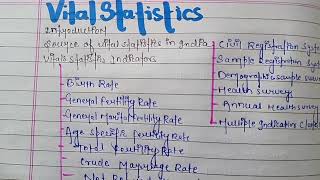 Vital Statistics
Introduction
Source of vital statistics in India
Vitals statistics Indicators
Birth Rate
General Fertility Rate
General Marital Fertility Rate
Age Specific Fertility Rate
Total Fertility Rate
Crude Marriage Rate
Civil Registration Syst
Sample Registration Syst
Demographic sample surv
Health surveys
Annual Health survey
Multiple Indicators